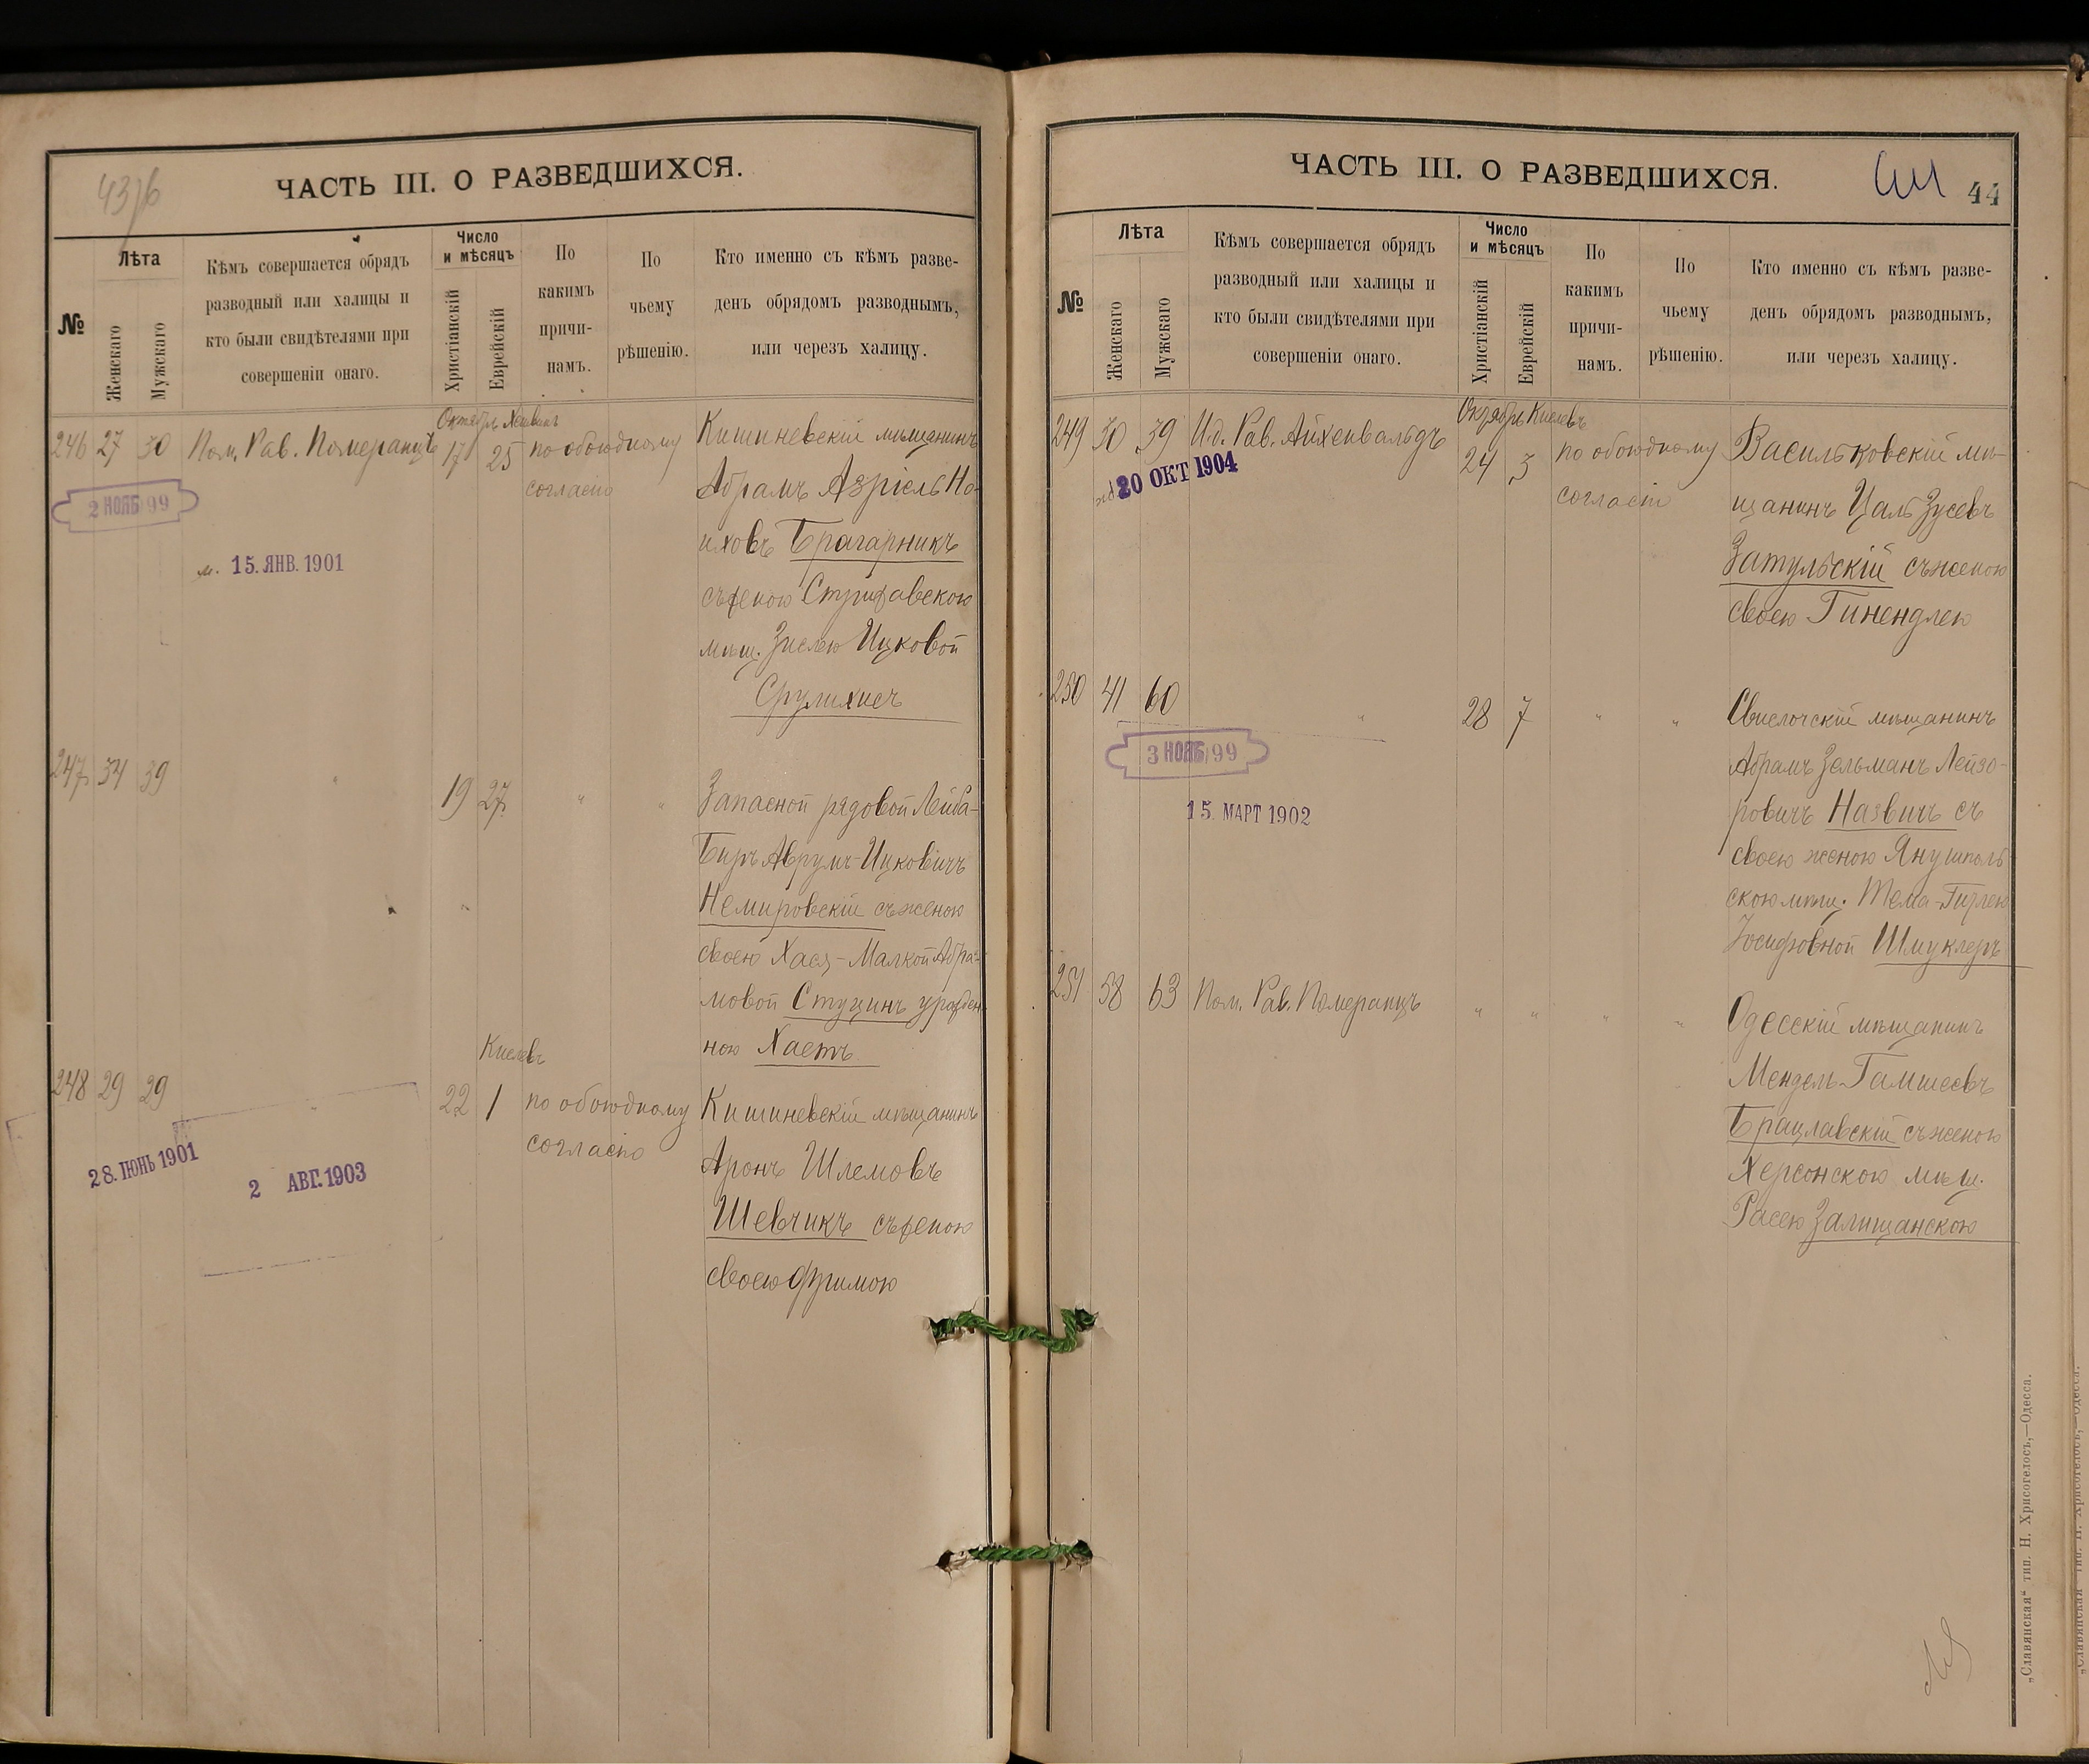 43/б
ЧАСТЬ III. О РАЗВЕДШИХСЯ.
№
Лѣта
Женскаго
Мужскаго
Кѣмъ совершается обрядъ
разводный или халицы и
кто были свидѣтелями при
совершеніи онаго.
Число
и мѣсяцъ
Христіанскій
Еврейскій
По
какимъ
причи-
намъ.
По
чьему
рѣшенію.
Кто именно съ кѣмъ разве-
денъ обрядомъ разводнымъ,
или черезъ халицу.
Октябрь Хешванъ
246 27 30 Пом. Рав. Померанцъ 17 25 по обоюдному
согласію
Кишиневскій мѣщанинъ
Абрамъ Азріель Но-
иховъ Брагарникъ
съ женою Стризавскою
мѣщ. Зислею Ицковой
Срулихисъ
2 НОЯБ 99
м. 15. ЯНВ. 1901
247 34 39 " 19 27 " "
Запасной рядовой Лейба-
Беръ Аврумъ-Ицковичъ
Немировскій съ женою
своею Хася-Малкой Абра-
мовой Стуцинъ урожден-
ною Хаетъ
Кислевъ
248 29 29 " 22 1 по обоюдному
согласію
Кишиневскій мѣщанинъ
Аронъ Шлемовъ
Шевчикъ съ женою
своею Фримою
28. ІЮНЬ 1901
2 АВГ. 1903
ЧАСТЬ III. О РАЗВЕДШИХСЯ.
44
№
Лѣта
Женскаго
Мужскаго
Кѣмъ совершается обрядъ
разводный или халицы и
кто были свидѣтелями при
совершеніи онаго.
Число
и мѣсяцъ
Христіанскій
Еврейскій
По
какимъ
причи-
намъ.
По
чьему
рѣшенію.
Кто именно съ кѣмъ разве-
денъ обрядомъ разводнымъ,
или черезъ халицу.
Октябрь Кислевъ
249 30 39 И.д. Рав. Айхенвальдъ 24 3 по обоюдному
согласію
Васильковскій мѣ-
щанинъ Цаль Зусевъ
Затульскій съ женою
своею Гинендлею
20 ОКТ 1904
250 41 60 " 28 7 " "
Свислочскій мѣщанинъ
Абрамъ Зельманъ Лейзо-
ровичъ Назвичъ съ
своею женою Янушполь
скою мѣщ. Тема-Гитлею
Іосифовной Шмуклеръ
3 НОЯБ 99
15. МАРТ 1902
251 58 63 Пом. Рав. Померанцъ " " " "
Одесскій мѣщанинъ
Мендель Гамшеевъ
Брацлавскій съ женою
Херсонскою мѣщ.
Расею Залищанскою
„Славянская“ тип. Н. Хрисогелосъ,—Одесса.